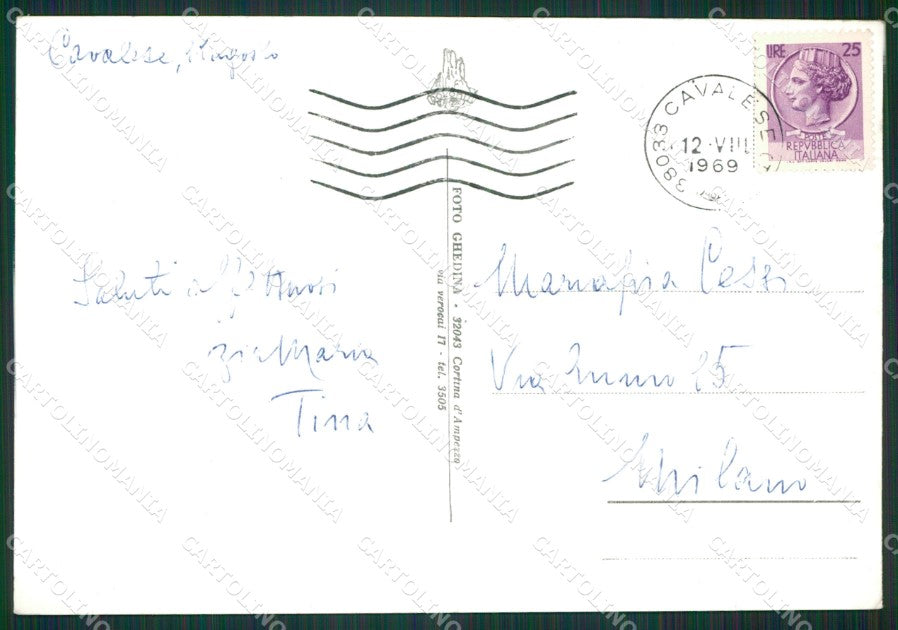 Cavalese, Agosto
LIRE 25
POSTE
REPVBBLICA
ITALIANA
38033 CAVALESE
12·VIII
1969
FOTO GHEDINA · 32043 Cortina d'Ampezzo
via verocai 17 - tel. 3505
Saluti
zia Maria
Tina
Via 25
Milano
CARTOLINOMANIA